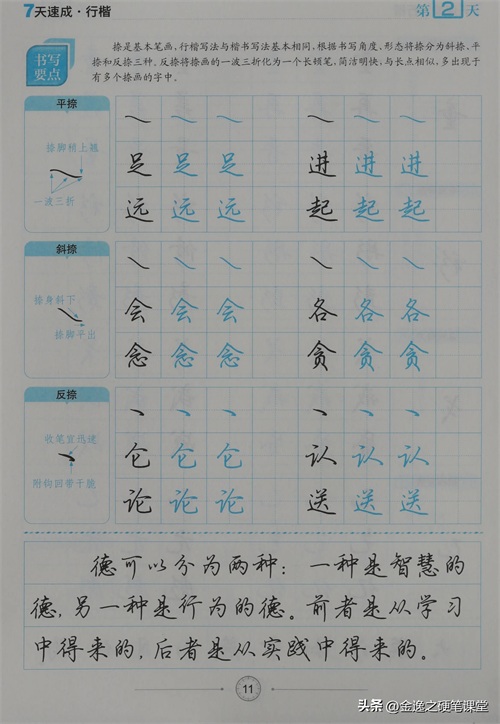 7天速成·行楷
第2天
书写要点
捺是基本笔画,行楷写法与楷书写法基本相同,根据书写角度、形态将捺分为斜捺、平
捺和反捺三种。反捺将捺画的一波三折化为一个长顿笔,简洁明快,与长点相似,多出现于
有多个捺画的字中。
平捺
捺脚稍上翘
一波三折
足足足 进进进
远远远 起起起
斜捺
捺身斜下
捺脚平出
会会会 各各各
念念念 贪贪贪
反捺
收笔宜迅速
附钩回带干脆
仑仑仑 认认认
论论论 送送送
德可以分为两种:一种是智慧的
德,另一种是行为的德。前者是从学习
中得来的,后者是从实践中得来的。
11
头条@金逸之硬笔课堂